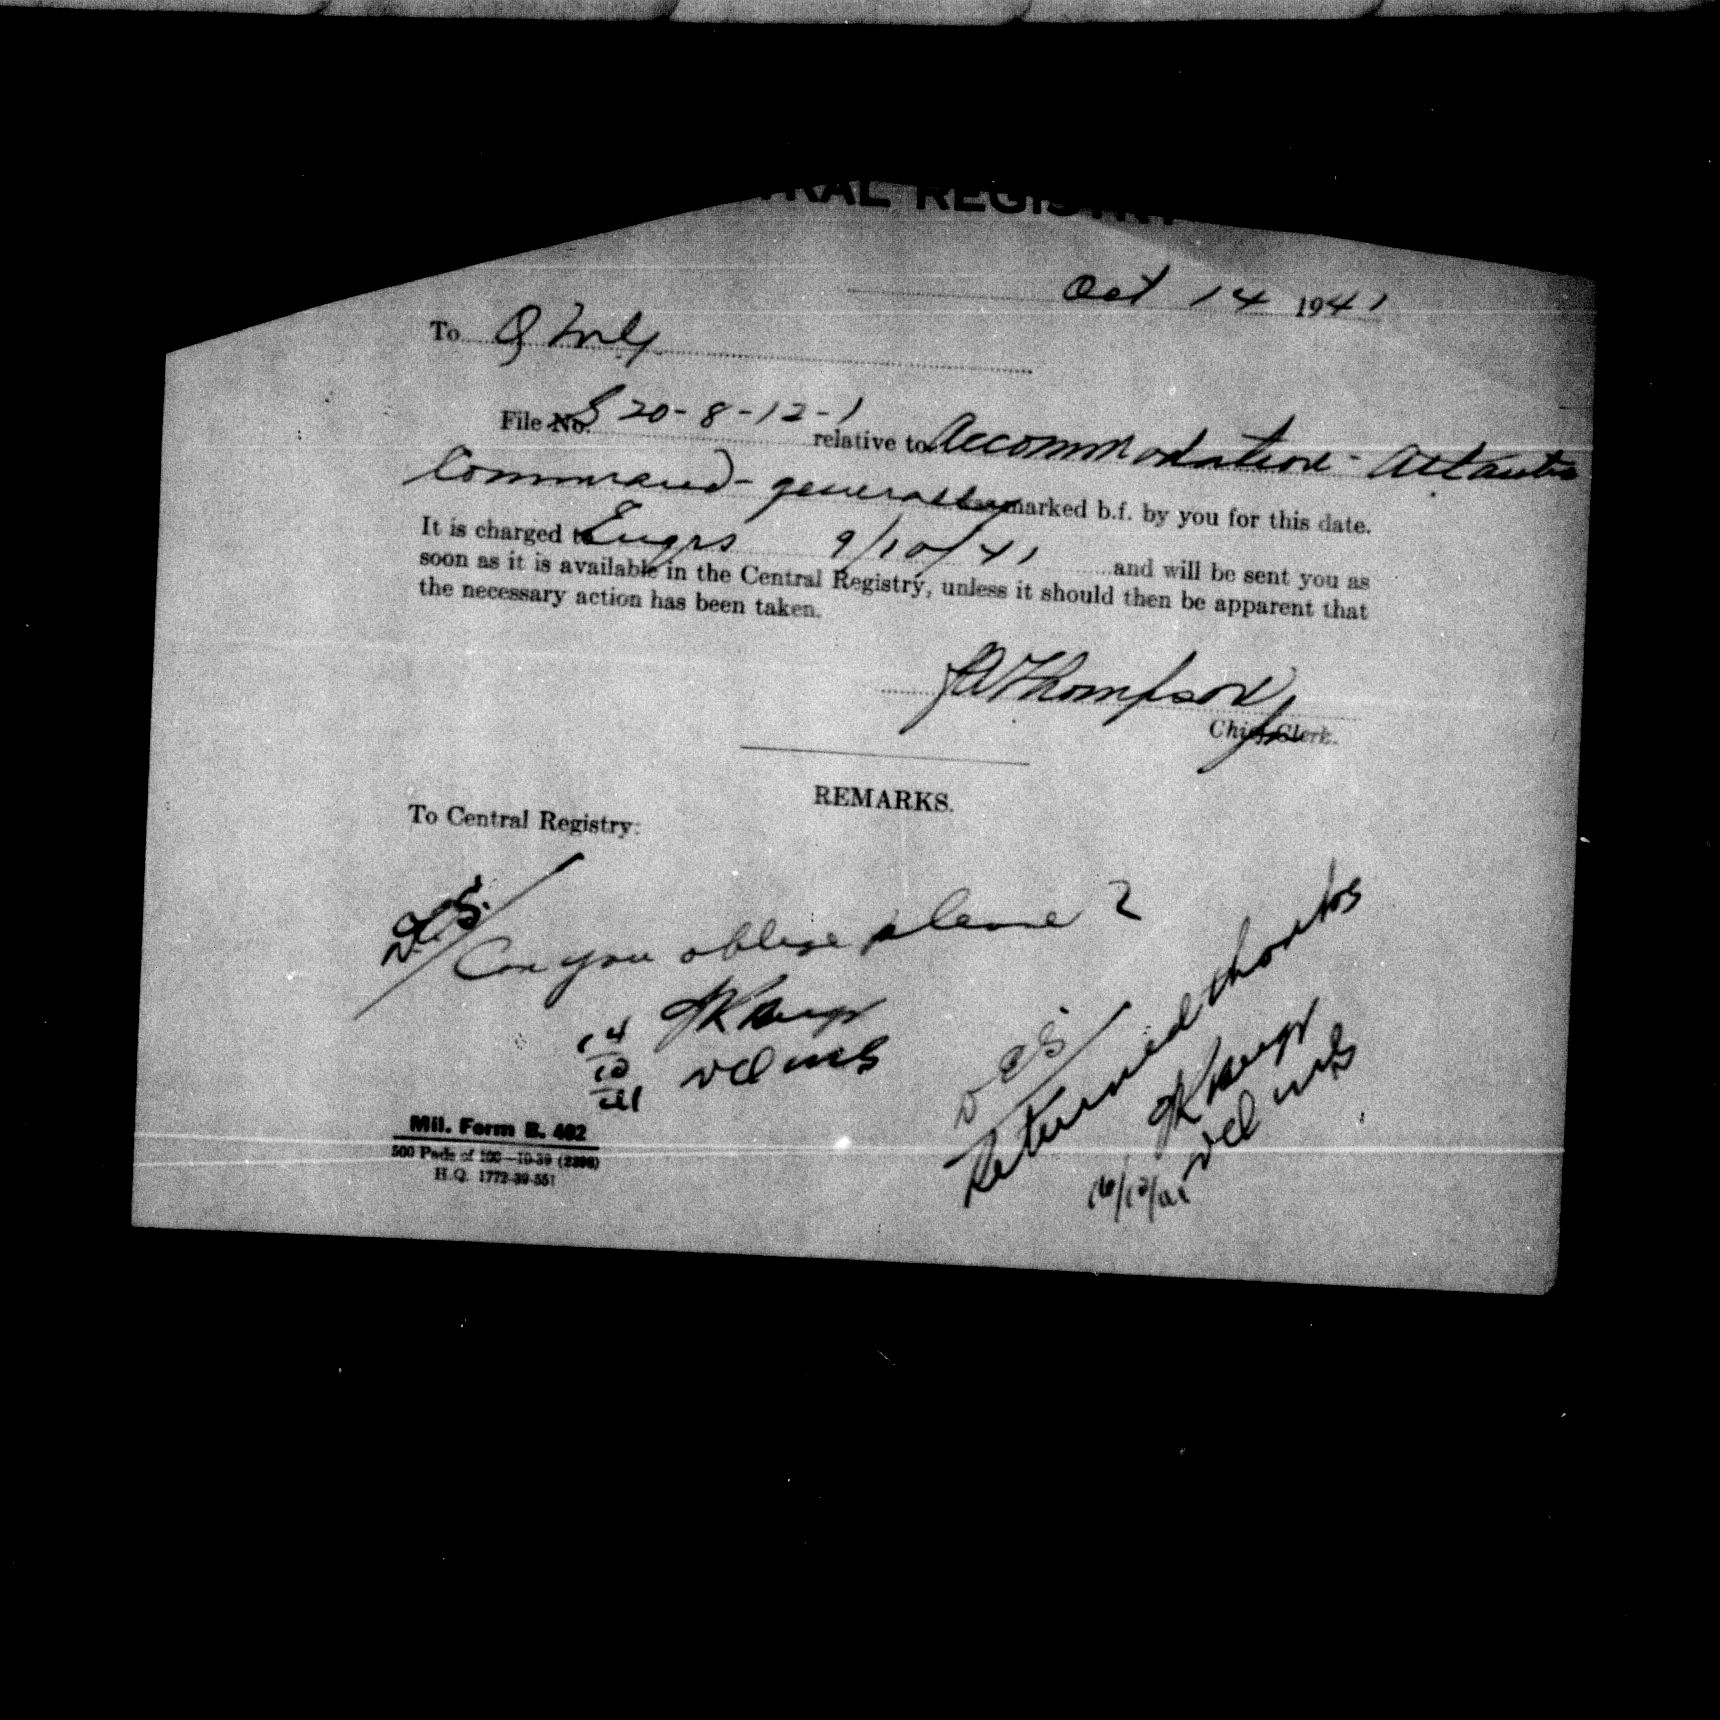 TRAL REGISTRY
Oct 14 1941
To Q
File No. S 20-8-12-1 relative to Accommodation - Atlantic
Command - generally marked b.f. by you for this date.
It is charged to Engrs 9/10/41 and will be sent you as
soon as it is available in the Central Registry, unless it should then be apparent that
the necessary action has been taken.
Thompson
Chief Clerk.
REMARKS.
To Central Registry:
DES.
Can you oblige please?
14
10
41
DES
Returned thanks
16/10/41
Mil. Form B. 402
500 Pads of 100—10-39 (2398)
H.Q. 1772-39-551